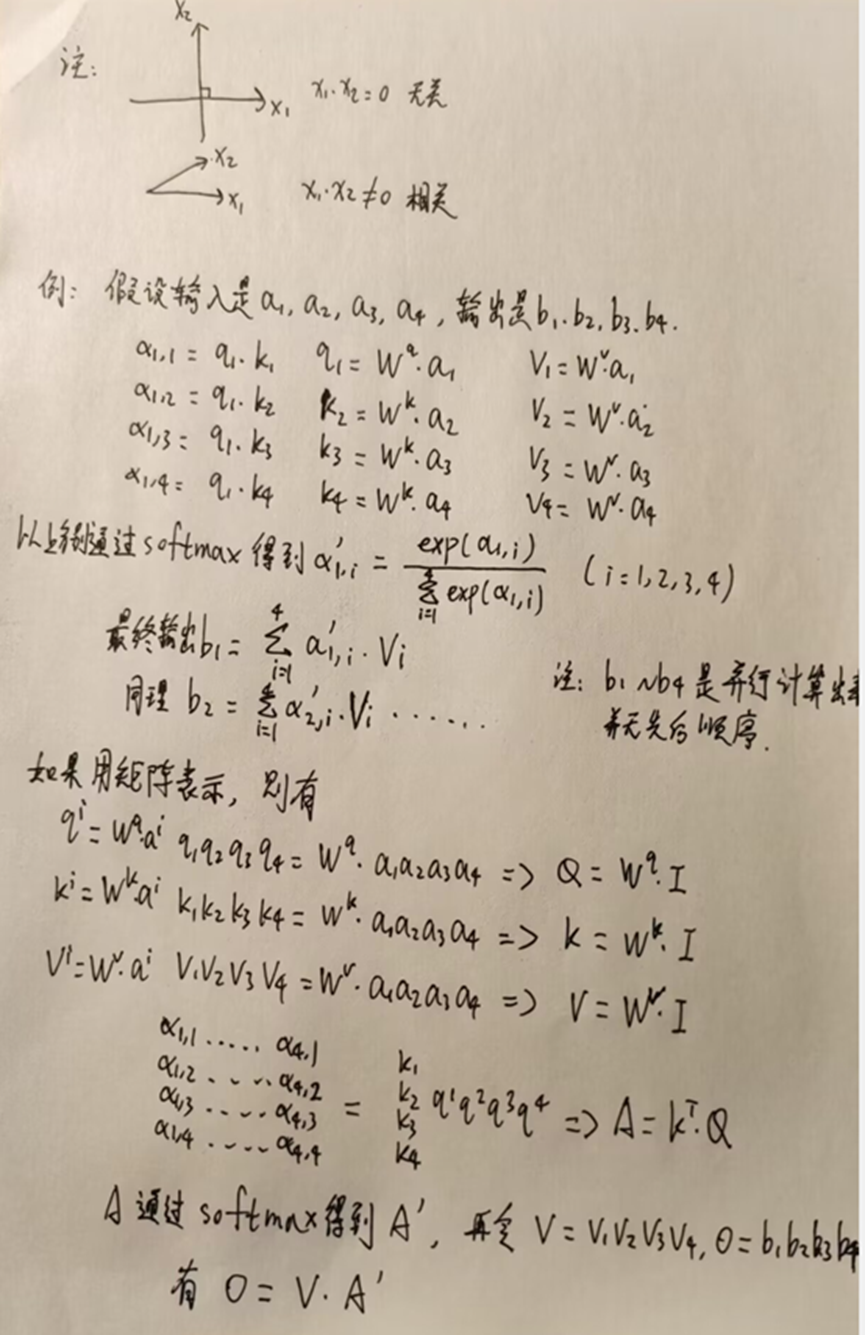 x₂
注:
x₁ x₁·x₂=0 无关
x₂
x₁ x₁·x₂≠0 相关
例: 假设输入是a₁, a₂, a₃, a₄, 输出是b₁.b₂,b₃.b₄.
α₁,₁ = q₁·k₁ q₁ = W^q·a₁ V₁ = W^v·a₁
α₁,₂ = q₁·k₂ k₂ = W^k·a₂ V₂ = W^v·a₂
α₁,₃ = q₁·k₃ k₃ = W^k·a₃ V₃ = W^v·a₃
α₁,₄ = q₁·k₄ k₄ = W^k·a₄ V₄ = W^v·a₄
以上分别通过softmax得到α′₁,ᵢ = exp(α₁,ᵢ) / Σ_{i=1}^{4} exp(α₁,ᵢ) (i=1,2,3,4)
最终输出b₁ = Σ_{i=1}^{4} a′₁,ᵢ·Vᵢ
同理 b₂ = Σ_{i=1}^{4} α′₂,ᵢ·Vᵢ ······
注: b₁~b₄是并行计算出来
并无先后顺序.
如果用矩阵表示, 则有
qⁱ = W^q·aⁱ q₁q₂q₃q₄ = W^q·a₁a₂a₃a₄ => Q = W^q·I
kⁱ = W^k·aⁱ k₁k₂k₃k₄ = W^k·a₁a₂a₃a₄ => k = W^k·I
Vⁱ = W^v·aⁱ V₁V₂V₃V₄ = W^v·a₁a₂a₃a₄ => V = W^v·I
α₁,₁ ····· α₄,₁ k₁
α₁,₂ ···· α₄,₂ k₂
α₁,₃ ····· α₄,₃ = k₃ q¹q²q³q⁴ => A = k^T·Q
α₁,₄ ····· α₄,₄ k₄
A 通过 softmax得到 A′, 再令 V = V₁V₂V₃V₄, O = b₁b₂b₃b₄
有 O = V·A′